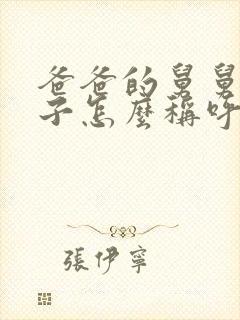 爸爸的舅舅
子怎麼稱呼
張伊寧